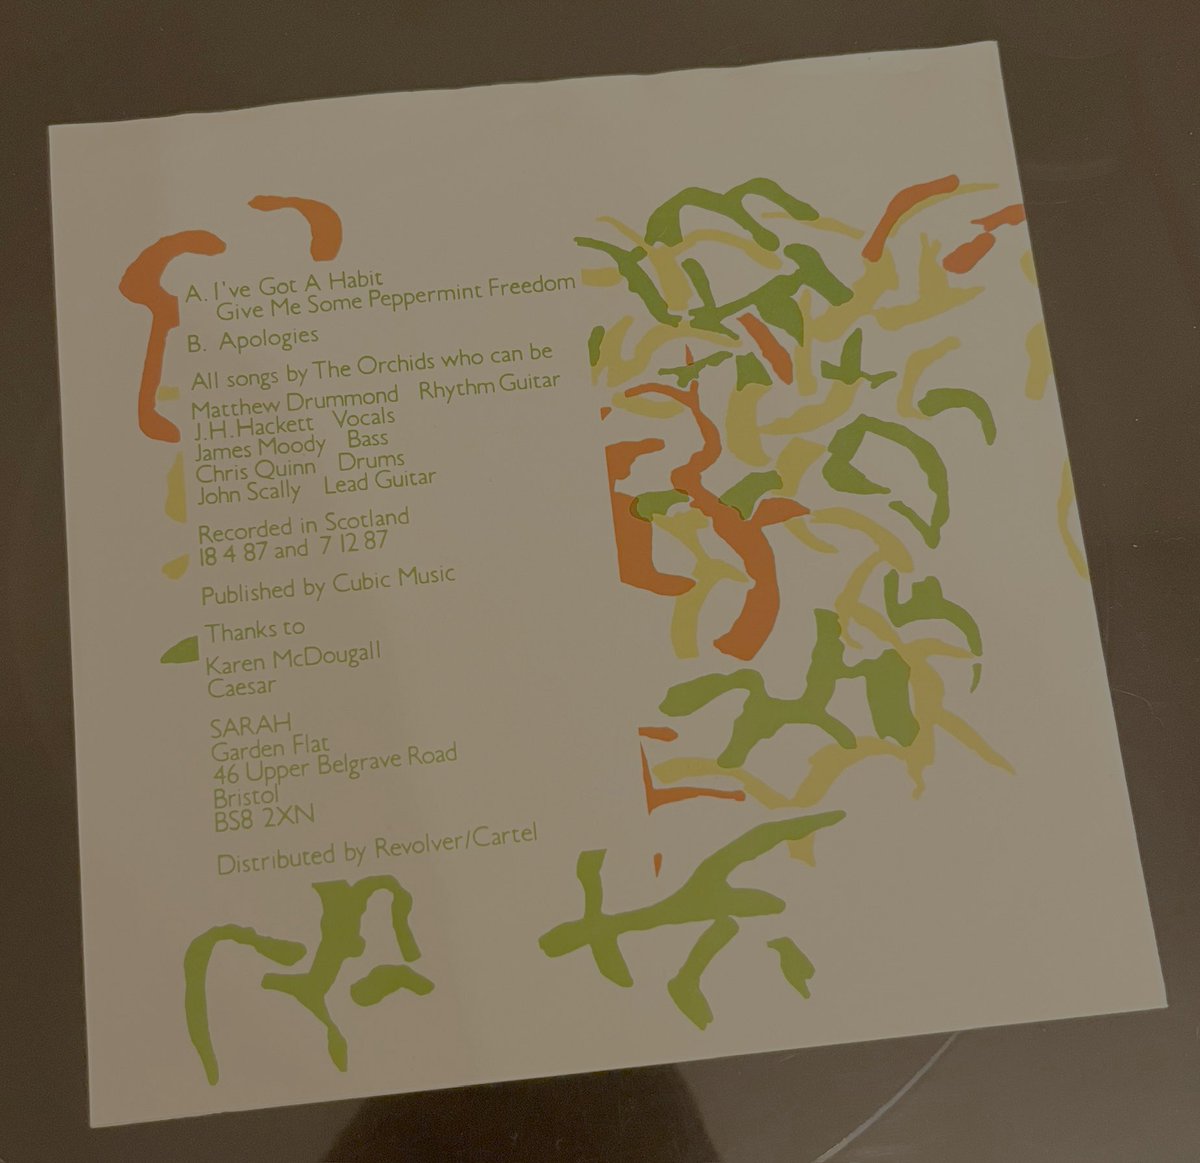 A. I've Got A Habit
Give Me Some Peppermint Freedom
B. Apologies
All songs by The Orchids who can be
Matthew Drummond Rhythm Guitar
J.H.Hackett Vocals
James Moody Bass
Chris Quinn Drums
John Scally Lead Guitar
Recorded in Scotland
18 4 87 and 7 12 87
Published by Cubic Music
Thanks to
Karen McDougall
Caesar
SARAH
Garden Flat
46 Upper Belgrave Road
Bristol
BS8 2XN
Distributed by Revolver/Cartel